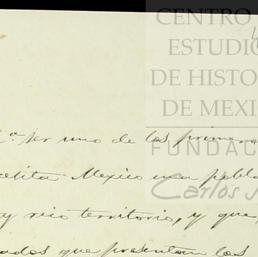 CENTRO
ESTUDIO
DE HISTO
DE MEXI
FUNDAC
Carlos
ser uno de los primero
Mexico una pobla
territorio, y que
que presentan los